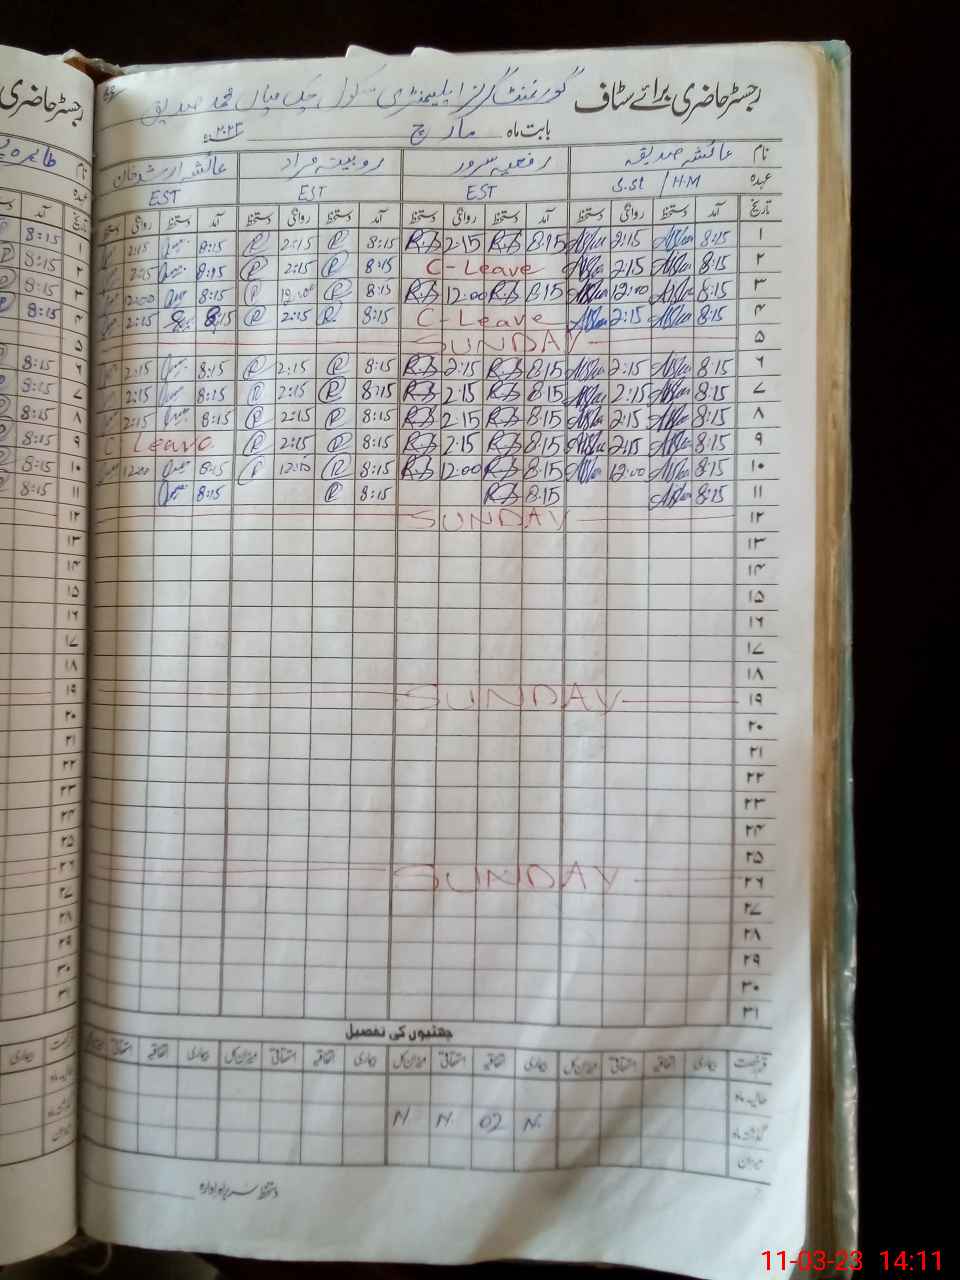 رجسٹر حاضری برائے سٹاف گورنمنٹ گرلز ایلیمنٹری سکول چک میاں محمد صدیق
بابت ماہ مارچ ۲۰۲۳ء
نام عائشہ صدیقہ رفعیہ سرور روبینہ مراد عائشہ ارشد خان
عہدہ S.St / H.M EST EST EST
تاریخ آمد دستخط روانگی دستخط آمد دستخط روانگی دستخط آمد دستخط روانگی دستخط آمد دستخط روانگی دستخط
۱ 8:15 2:15 8:15 R.S 2:15 R.S 8:15 P 2:15 P 8:15 2:15
۲ 8:15 2:15 C-Leave 8:15 P 2:15 P 8:15 2:15
۳ 8:15 12:00 8:15 R.S 12:00 R.S 8:15 P 12:00 P 8:15 12:00
۴ 8:15 2:15 C-Leave 8:15 P 2:15 P 8:15 2:15
۵ SUNDAY
۶ 8:15 2:15 8:15 R.S 2:15 R.S 8:15 P 2:15 P 8:15 2:15
۷ 8:15 2:15 8:15 R.S 2:15 R.S 8:15 P 2:15 P 8:15 2:15
۸ 8:15 2:15 8:15 R.S 2:15 R.S 8:15 P 2:15 P 8:15 2:15
۹ 8:15 2:15 8:15 R.S 2:15 R.S 8:15 P 2:15 P C Leave
۱۰ 8:15 12:00 8:15 R.S 12:00 R.S 8:15 P 12:10 P 8:15 12:00
۱۱ 8:15 8:15 R.S 8:15 P 8:15
۱۲ SUNDAY
۱۳
۱۴
۱۵
۱۶
۱۷
۱۸
۱۹ SUNDAY
۲۰
۲۱
۲۲
۲۳
۲۴
۲۵
۲۶ SUNDAY
۲۷
۲۸
۲۹
۳۰
۳۱
چھٹیوں کی تفصیل
قسم رخصت بیماری اتفاقیہ استحقاقی میزان کل بیماری اتفاقیہ استحقاقی میزان کل بیماری اتفاقیہ استحقاقی میزان کل بیماری اتفاقیہ استحقاقی
حالیہ ماہ
گذشتہ ماہ N 02 N N
میزان
دستخط سربراہ ادارہ
11-03-23 14:11